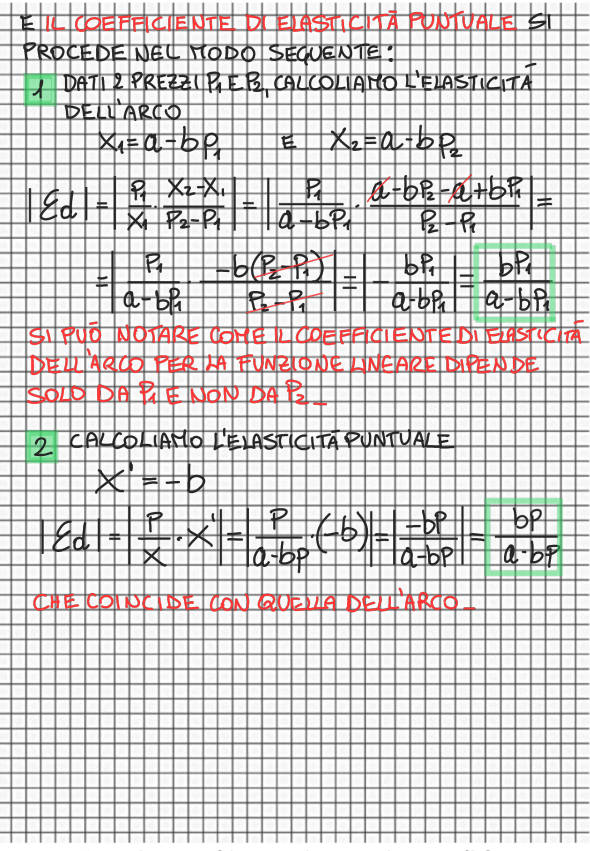 E IL COEFFICIENTE DI ELASTICITÀ PUNTUALE SI
PROCEDE NEL MODO SEGUENTE:
1 DATI 2 PREZZI P₁ E P₂, CALCOLIAMO L'ELASTICITÀ
DELL'ARCO
X₁=a-bp₁ E X₂=a-bp₂
|Ed| = |P₁/X₁ · (X₂-X₁)/(P₂-P₁)| = |P₁/(a-bP₁) · (a-bP₂-a+bP₁)/(P₂-P₁)| =
= |P₁/(a-bP₁) · -b(P₂-P₁)/(P₂-P₁)| = |- bP₁/(a-bP₁)| = bP₁/(a-bP₁)
SI PUÒ NOTARE COME IL COEFFICIENTE DI ELASTICITÀ
DELL'ARCO PER LA FUNZIONE LINEARE DIPENDE
SOLO DA P₁ E NON DA P₂_
2 CALCOLIAMO L'ELASTICITÀ PUNTUALE
X' = -b
|Ed| = |P/X · X'| = |P/(a-bp) · (-b)| = |-bP/(a-bP)| = bP/(a-bP)
CHE COINCIDE CON QUELLA DELL'ARCO_